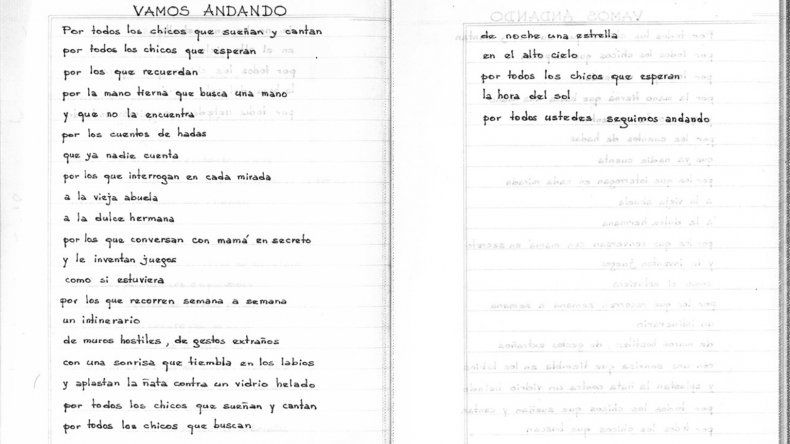 VAMOS ANDANDO
Por todos los chicos que sueñan y cantan
por todos los chicos que esperan
por los que recuerdan
por la mano tierna que busca una mano
y que no la encuentra
por los cuentos de hadas
que ya nadie cuenta
por los que interrogan en cada mirada
a la vieja abuela
a la dulce hermana
por los que conversan con mamá en secreto
y le inventan juegos
como si estuviera
por los que recorren semana a semana
un intinerario
de muros hostiles, de gestos extraños
con una sonrisa que tiembla en los labios
y aplastan la ñata contra un vidrio helado
por todos los chicos que sueñan y cantan
por todos los chicos que buscan
de noche una estrella
en el alto cielo
por todos los chicos que esperan
la hora del sol
por todos ustedes seguimos andando